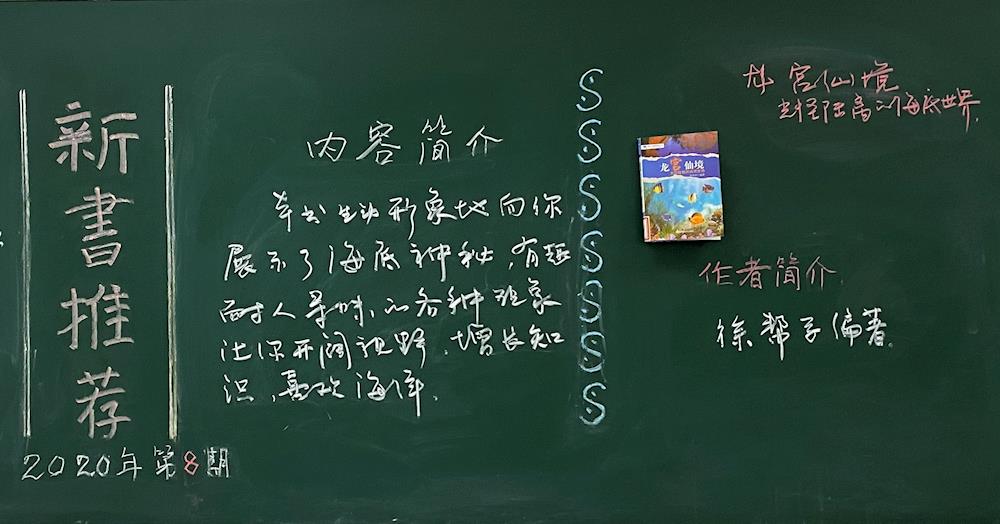 新
書
推
荐
2020年第8期
内容简介
本书生动形象地向你
展示了海底神秘,有趣
耐人寻味的各种现象
让你开阔视野,增长知
识,喜欢海洋.
S
S
S
S
S
S
S
S
龙宫仙境
光怪陆离的海底世界.
龙宫仙境
作者简介.
徐帮学编著.